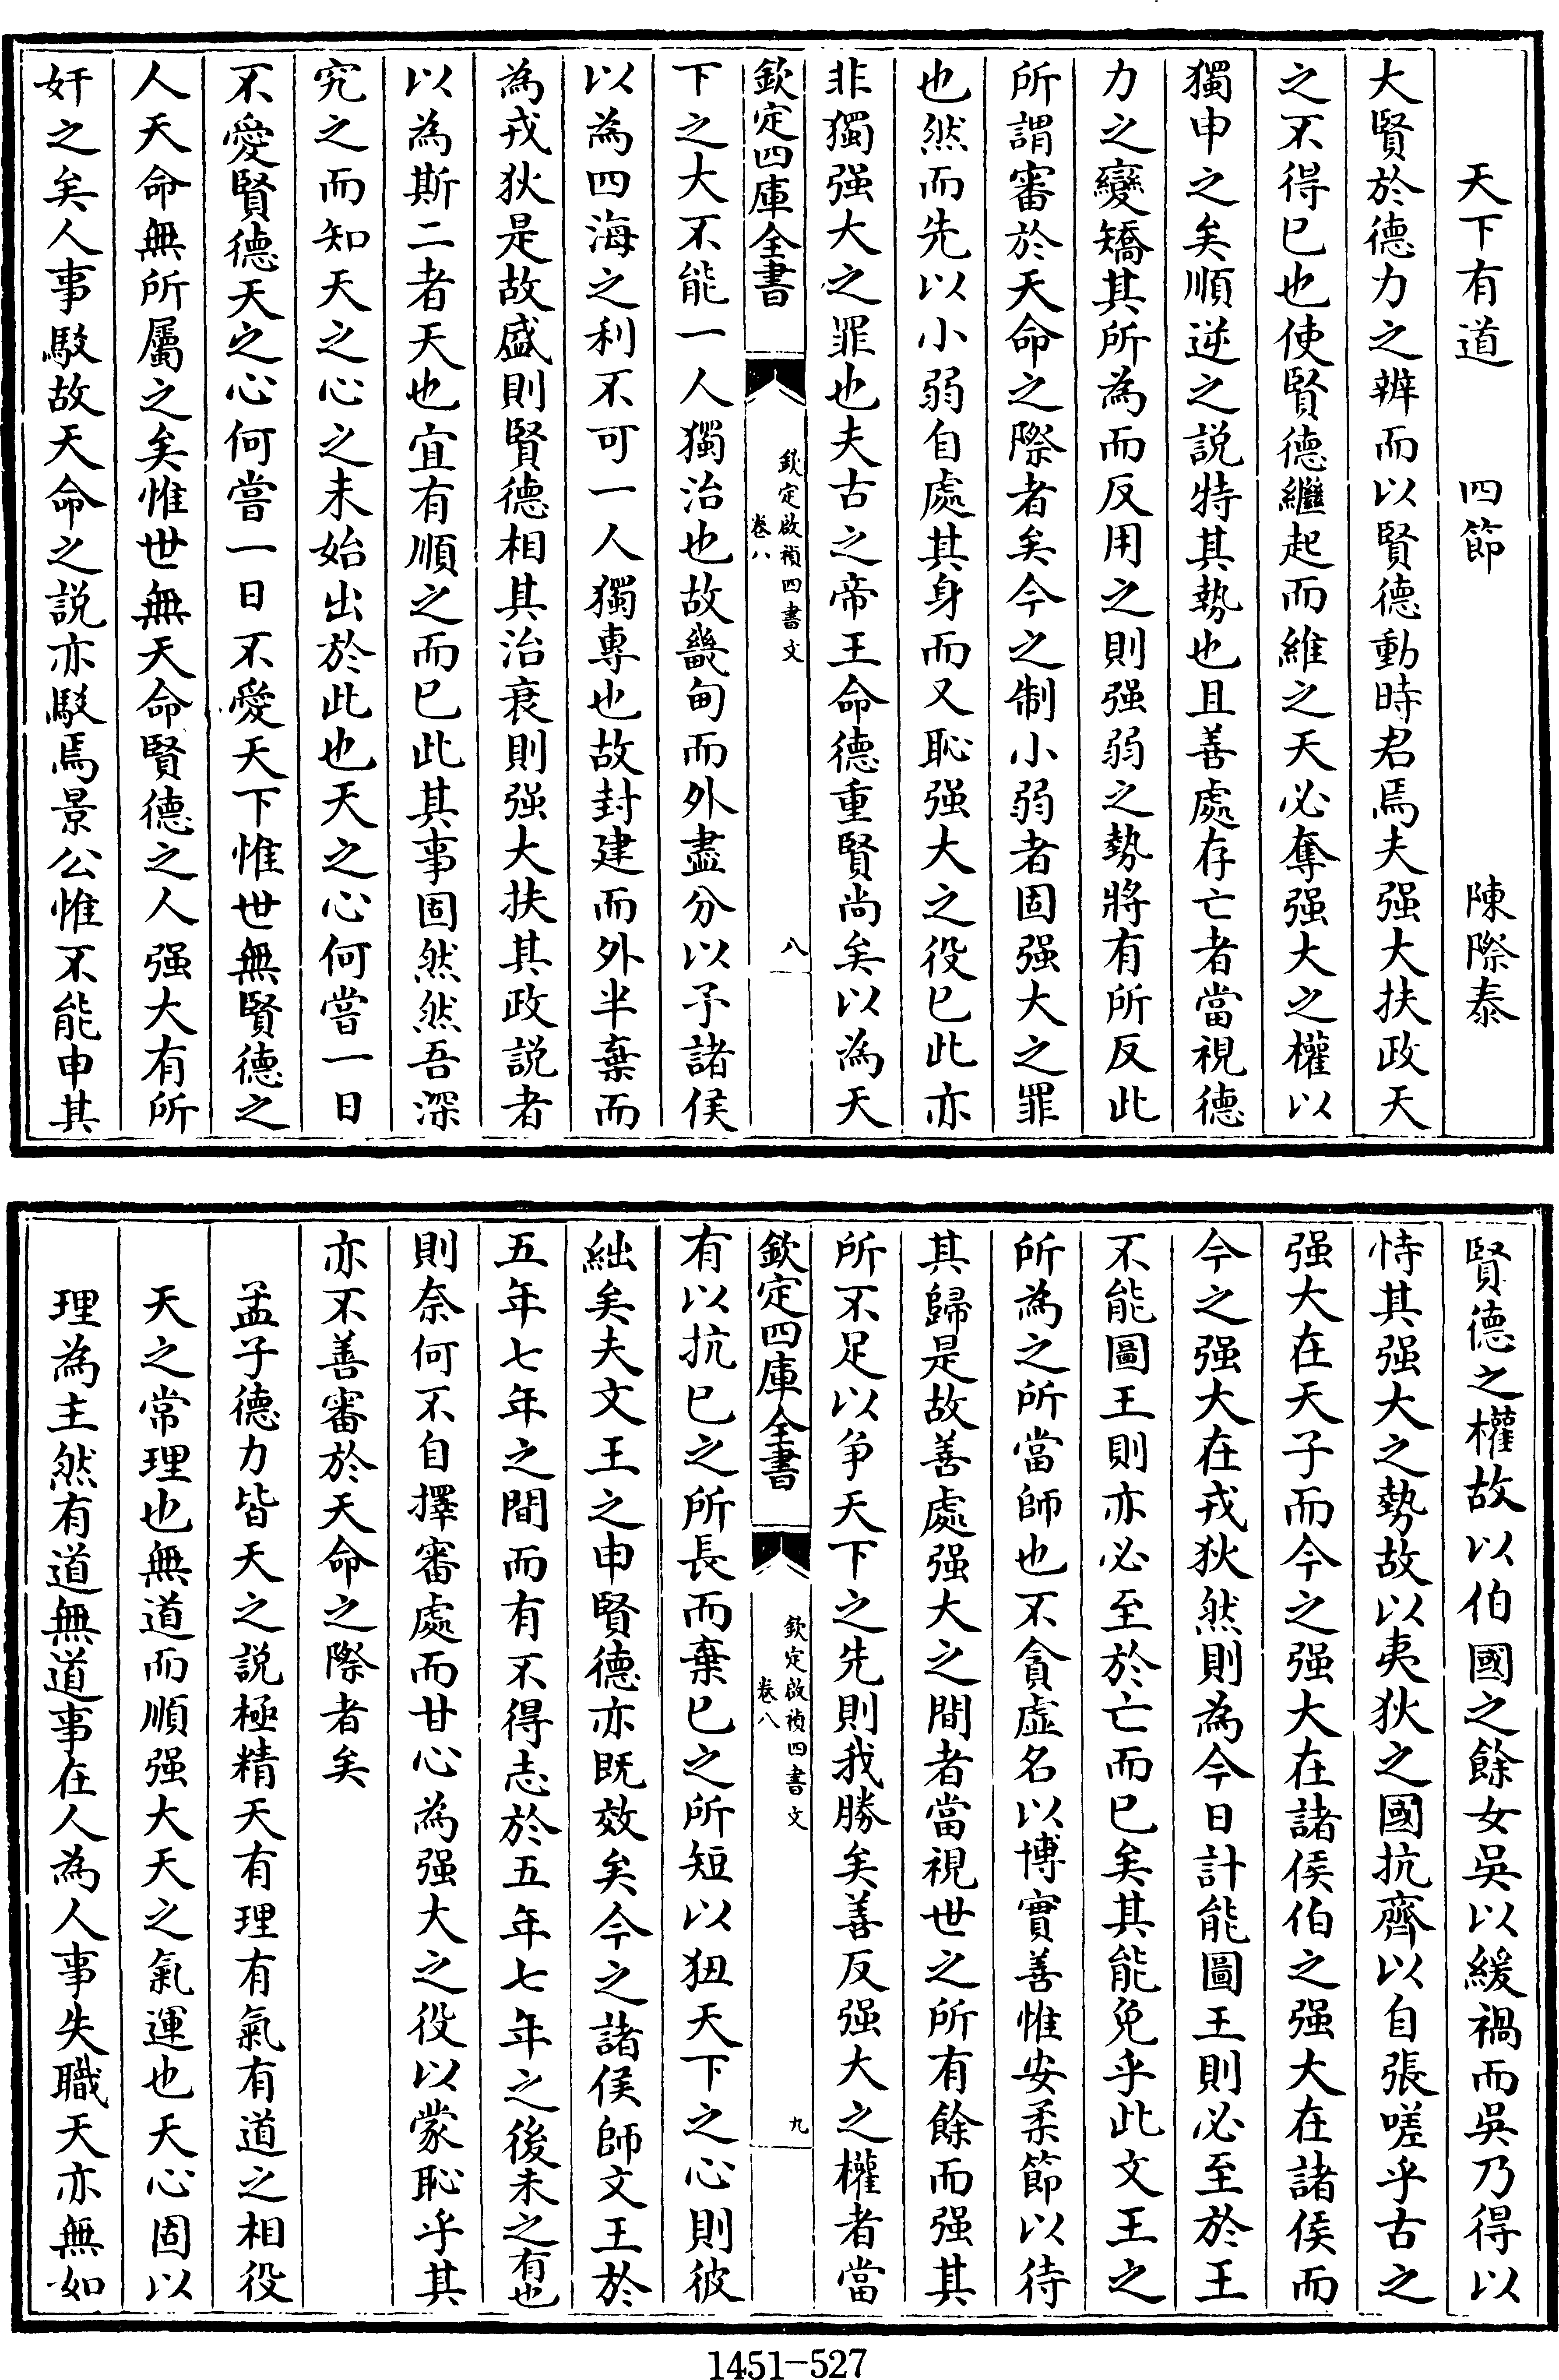 天下有道　四節　陳際泰
大賢於德力之辨而以賢德動時君焉夫强大扶政天
之不得已也使賢德繼起而維之天必奪强大之權以
獨申之矣順逆之説特其勢也且善處存亡者當視德
力之變矯其所為而反用之則强弱之勢將有所反此
所謂審於天命之際者矣今之制小弱者固强大之罪
也然而先以小弱自處其身而又恥强大之役已此亦
非獨强大之罪也夫古之帝王命德重賢尚矣以為天
欽定四庫全書
欽定啟禎四書文
卷八
八
下之大不能一人獨治也故畿甸而外盡分以予諸侯
以為四海之利不可一人獨專也故封建而外半棄而
為戎狄是故盛則賢德相其治衰則强大扶其政説者
以為斯二者天也宜有順之而已此其事固然然吾深
究之而知天之心之未始出於此也天之心何嘗一日
不愛賢德天之心何嘗一日不愛天下惟世無賢德之
人天命無所屬之矣惟世無天命賢德之人强大有所
奸之矣人事駁故天命之説亦駁焉景公惟不能申其
賢德之權故以伯國之餘女吳以緩禍而吳乃得以
恃其强大之勢故以夷狄之國抗齊以自張嗟乎古之
强大在天子而今之强大在諸侯伯之强大在諸侯而
今之强大在戎狄然則為今日計能圖王則必至於王
不能圖王則亦必至於亡而已矣其能免乎此文王之
所為之所當師也不貪虛名以博實善惟安柔節以待
其歸是故善處强大之間者當視世之所有餘而强其
所不足以争天下之先則我勝矣善反强大之權者當
欽定四庫全書
欽定啟禎四書文
卷八
九
有以抗已之所長而棄已之所短以狃天下之心則彼
絀矣夫文王之申賢德亦既效矣今之諸侯師文王於
五年七年之間而有不得志於五年七年之後未之有也
則奈何不自擇審處而甘心為强大之役以蒙恥乎其
亦不善審於天命之際者矣
孟子德力皆天之説極精天有理有氣有道之相役
天之常理也無道而順强大天之氣運也天心固以
理為主然有道無道事在人為人事失職天亦無如
1451-527